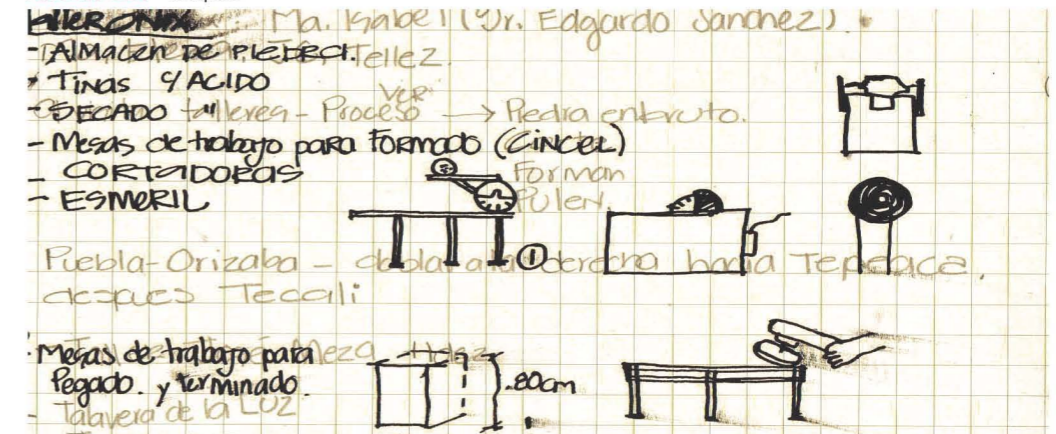 Taller ONIX Ma. Isabel (Sr. Edgardo Sanchez)
- Almacen de piedra. Tellez
- Tinas y ACIDO
- SECADO talleres - Proceso → Piedra en bruto.
Ver
- Mesas de trabajo para FORMADO (CINCEL)
- CORTADORAS Forman
- ESMERIL Pulen.
①
Puebla-Orizaba - dobla a la derecha hacia Tepeaca,
despues Tecali
- Mesas de trabajo para
Pegado. y terminado.
.80cm
- Talavera de la LUZ